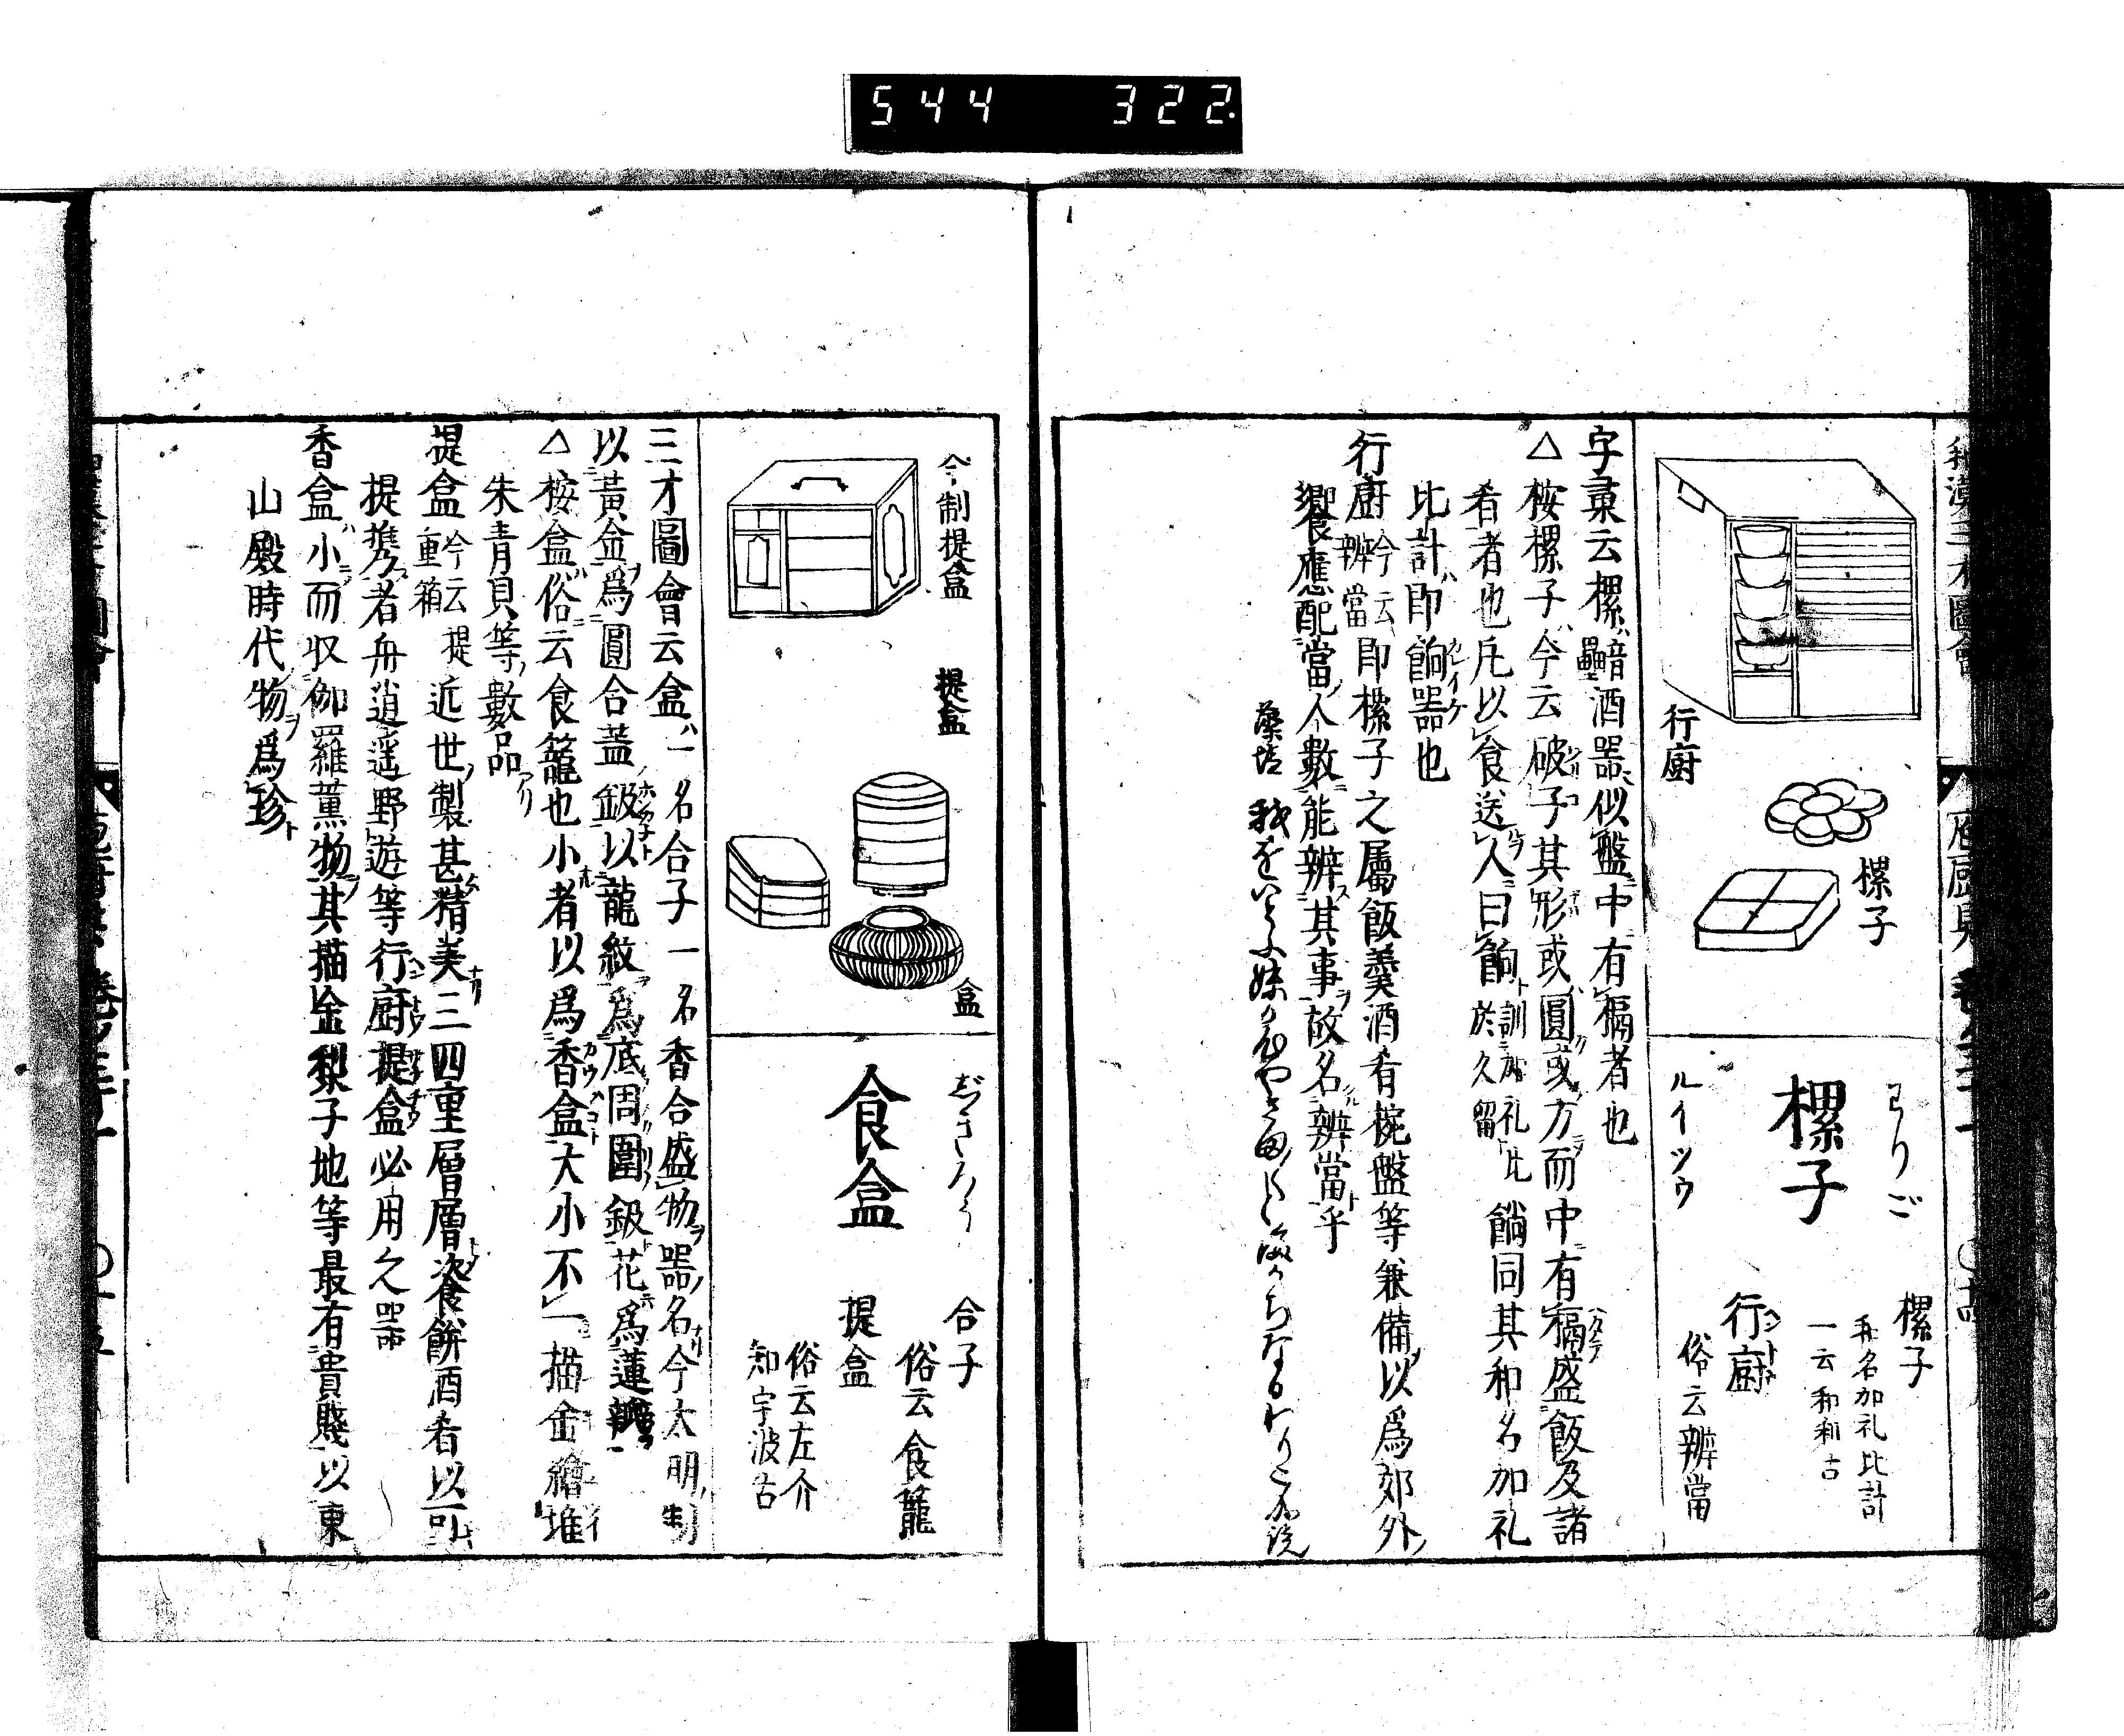 544 322.
行廚
樏子
わりご
樏子
ルイツウ
樏子
和名加礼比計
一云和利古
行廚
俗云辨當
字彙云樏音壘酒器似盤中有槅者也
△桉樏子今云破子其形或圓或方而中有槅盛飯及諸
肴者也凡以食送人曰餉訓加礼比於久留餉同其和名加礼
比計即餉器也
行廚今云辨當即樏子之屬飯羹酒肴椀盤等兼備以爲郊外
饗應配當人數能辨其事故名辨當乎
藻塩
今制提盒
提盒
盒
食盒
じきろう
合子
俗云食籠
提盒
俗云左介
知宇波古
三才圖會云盒一名合子一名香合盛物器名今太明制
以黃金爲圓合蓋鈒以龍紋爲底周圍鈒花爲蓮瓣
△桉盒俗云食籠也小者以爲香盒大小不一描金繪堆
朱青貝等數品
提盒今云提重箱近世製甚精美三四重層層盛餅酒肴以可
提携者舟逍遥野遊等行廚提盒必用之器
香盒小而收伽羅薰物其描金梨子地等最有貴賤以東
山殿時代物爲珍